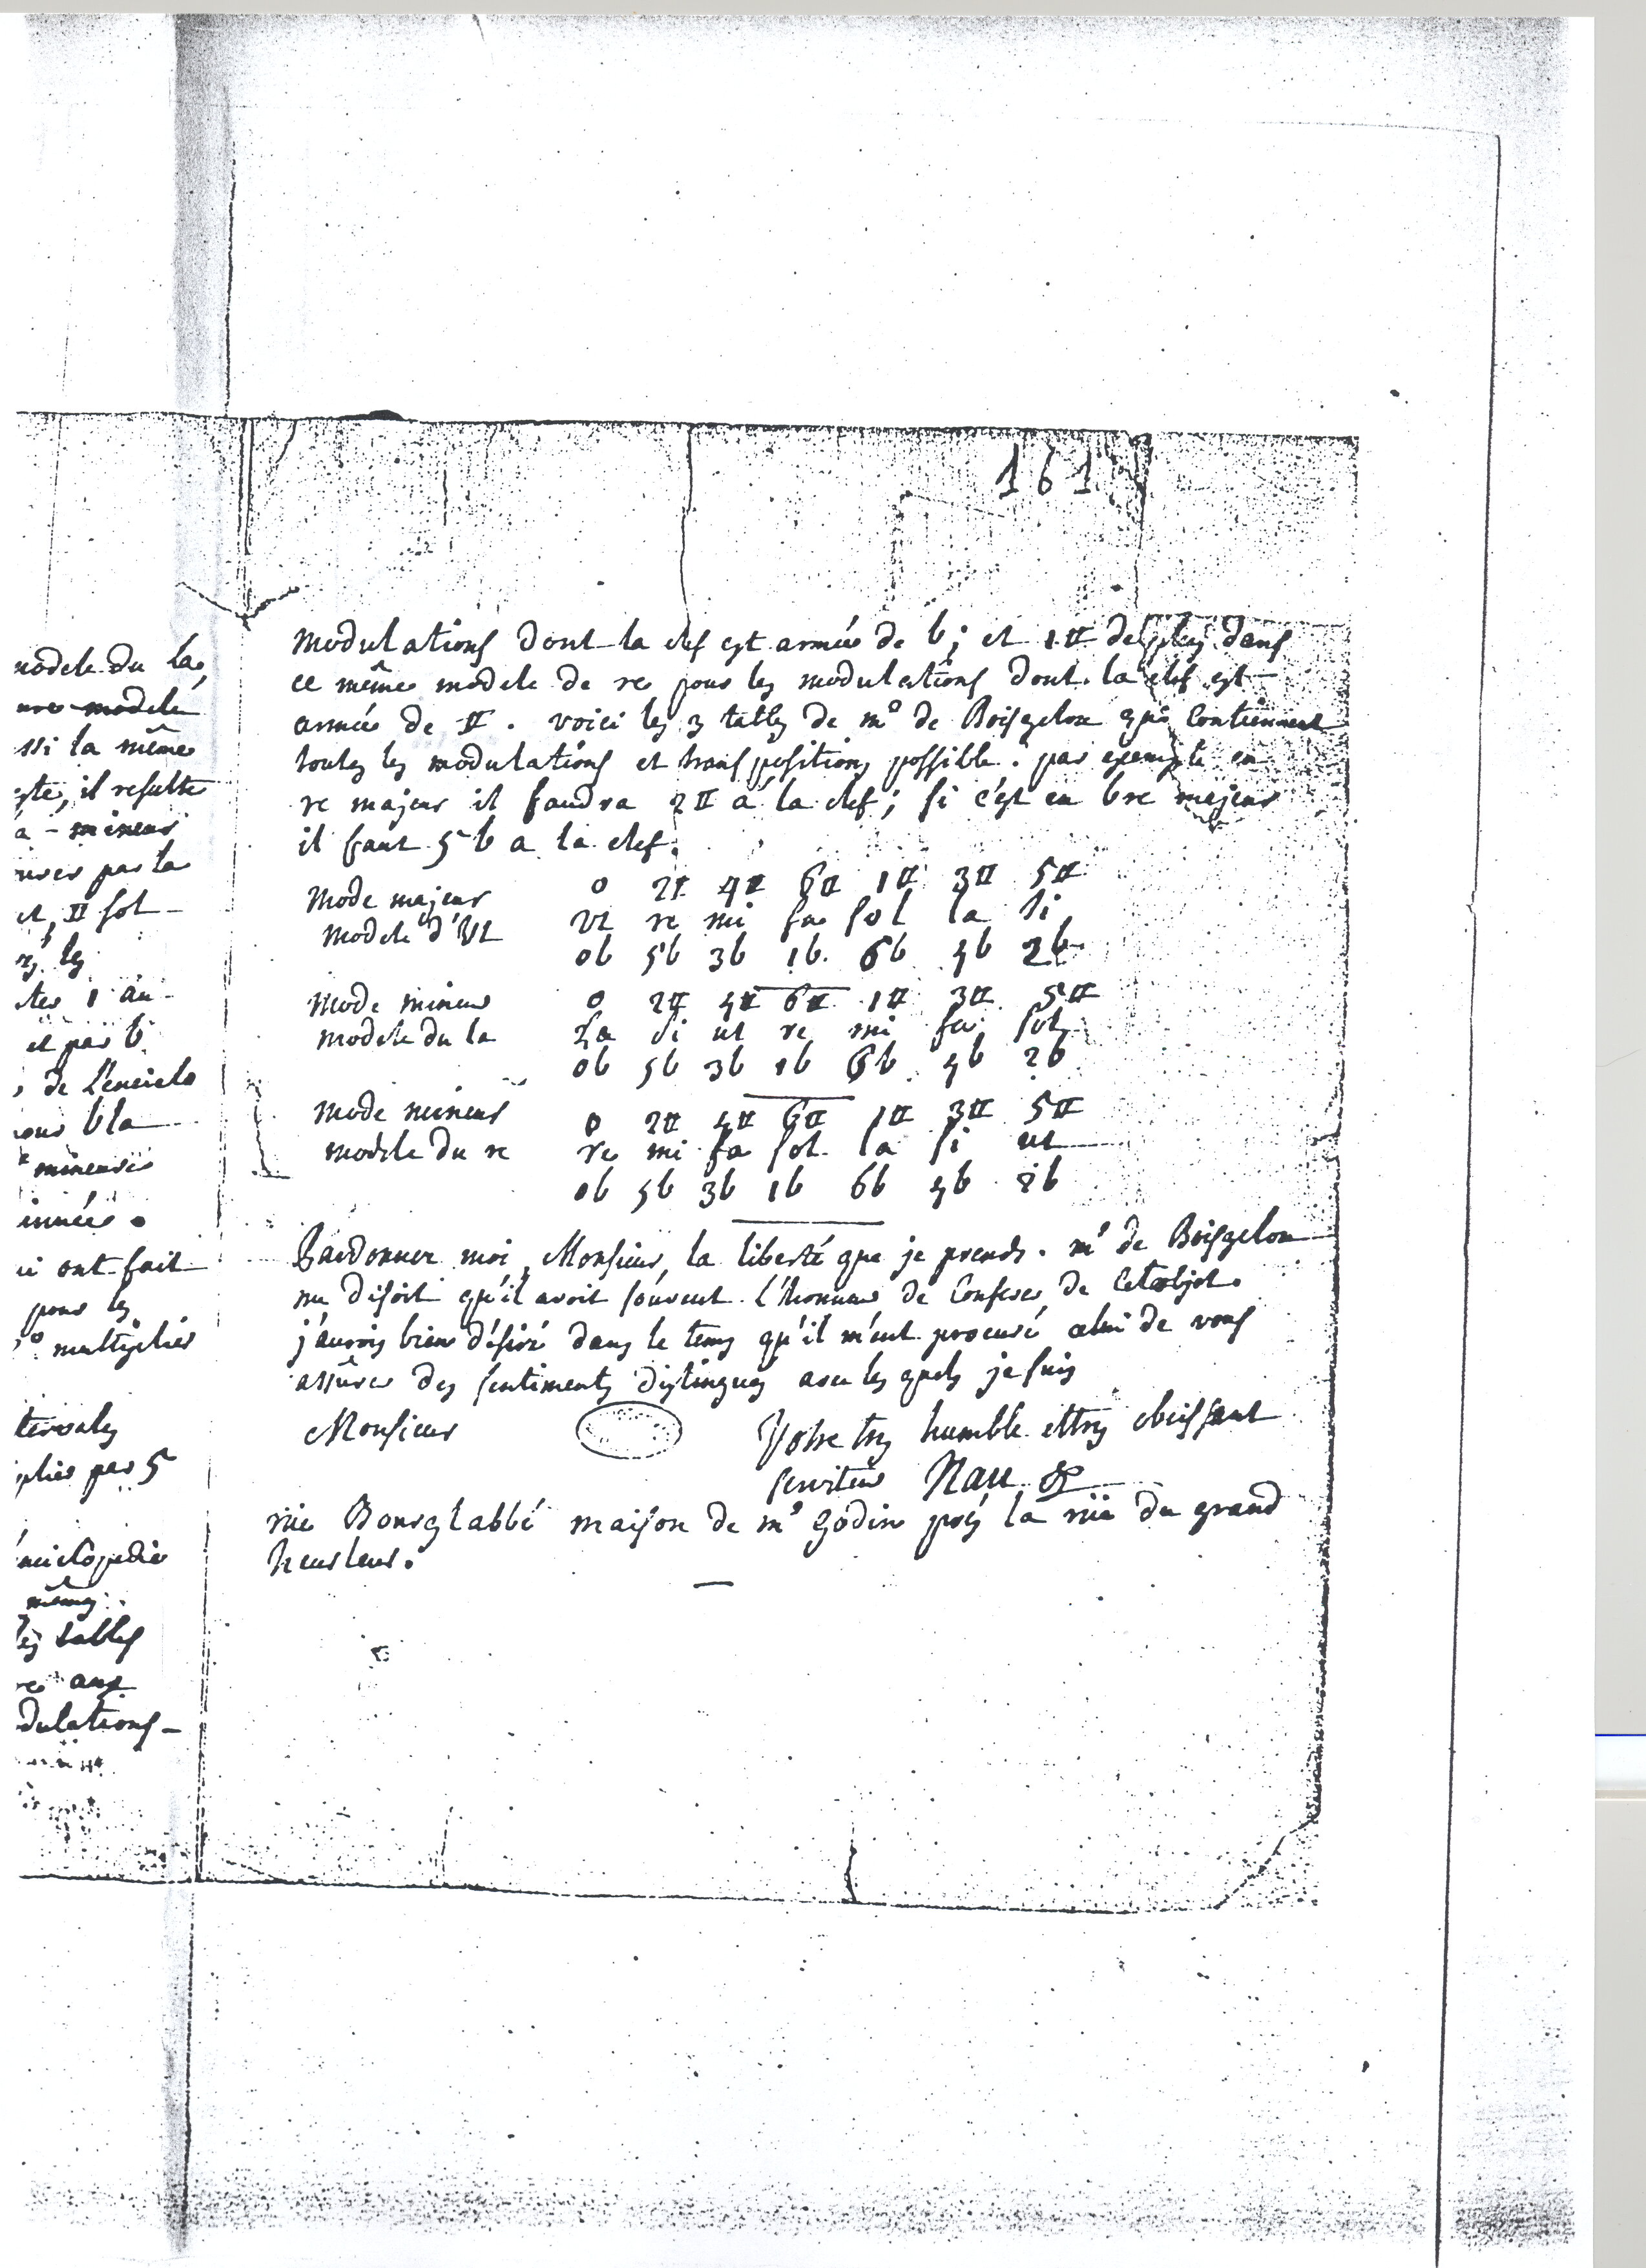 161
modulations dont la clef est armée de b; et 1 # de plus dans
ce même modele de re pour les modulations dont la clef est
armée de #. voici les 3 tables de mr de Boisgelou qui Contiennent
toutes les modulations et transpositions possible. par exemple en
re majeur il faudra 2 # a la clef; si c'est en b re majeur
il faut 5 b a la clef.
Mode majeur 0 2# 4# 6# 1# 3# 5#
modele d'Ut Ut re mi fa sol la si
0b 5b 3b 1b 6b 4b 2b
Mode mineur 0 2# 4# 6# 1# 3# 5#
modele du la La si ut re mi fa sol
0b 5b 3b 1b 6b 4b 2b
mode mineur 0 2# 4# 6# 1# 3# 5#
modele du re re mi fa sol la si ut
0b 5b 3b 1b 6b 4b 2b
Pardonner moi, Monsieur, la liberté que je prends. mr de Boisgelou
me disoit qu'il avoit souvent l'honneur de Conferer de Cet objet.
j'aurois bien désiré dans le tems qu'il m'eut procuré celui de vous
assûrer des sentiments distingués avec les quels je suis
Monsieur Votre tres humble et tres obeissant
serviteur Nau
rüe Bourglabbé maison de mr Godin près la rüe du grand
heurleur.
modele du la,
modele
ssi la même
il resulte
a - mineur
par la
et # sol
les
1 au
et par b
de L'enciclo
b la
mineurs
ont fait
pour les
multiplier
par 5
nciclopedie
mêmes
tables
aux
dulations